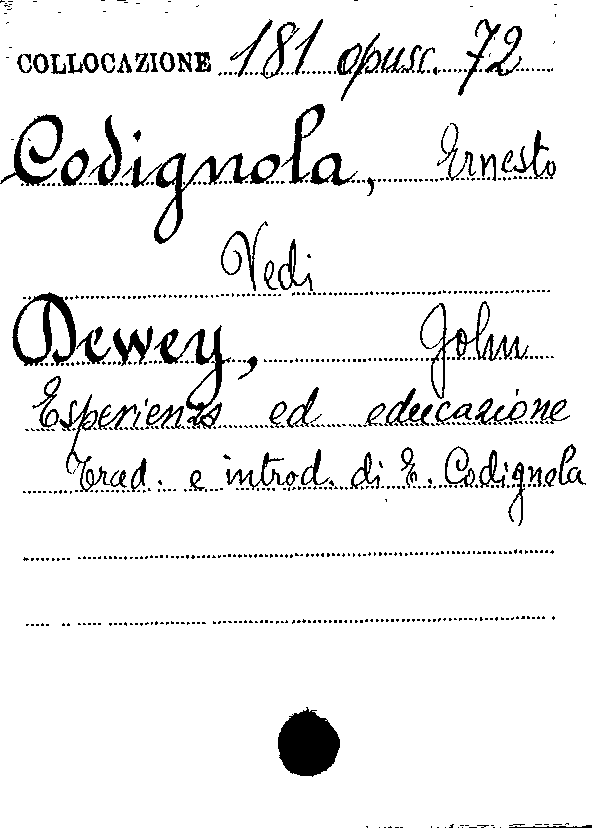 COLLOCAZIONE 181 opusc. 72
Codignola, Ernesto
Vedi
Dewey, John
Esperienza ed educazione
Trad. e introd. di E. Codignola